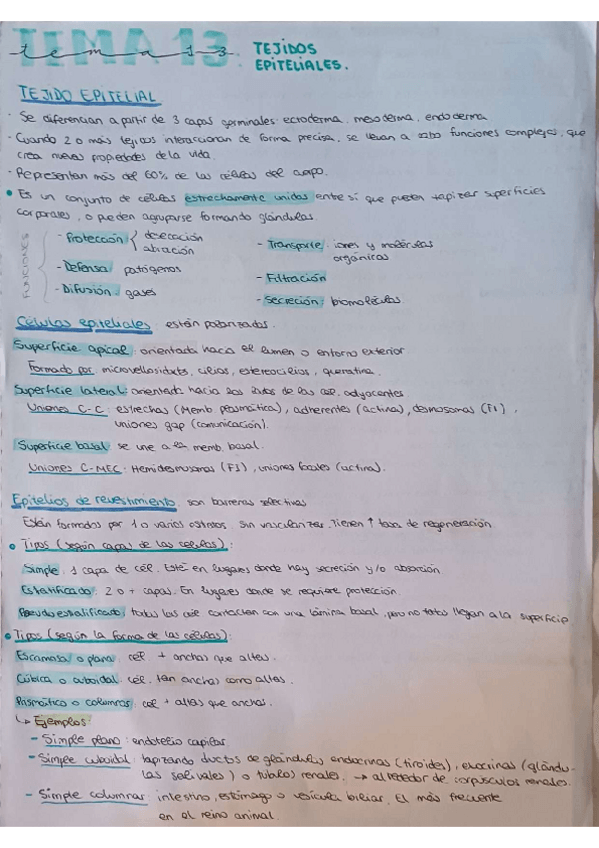 TEMA 13
tema 13 TEJIDOS
EPITELIALES.
TEJIDO EPITELIAL
· Se diferencian a partir de 3 capas germinales: ectoderma, mesoderma, endoderma
- Cuando 2 o más tejidos interaccionan de forma precisa, se llevan a cabo funciones complejas, que
crea nuevas propiedades de la vida.
- Representan más del 60% de las células del cuerpo.
• Es un conjunto de células estrechamente unidas entre sí que pueden tapizar superficies
corporales, o pueden agruparse formando glándulas.
FUNCIONES
- Protección { desecación
abración
- Defensa: patógenos
- Difusión: gases
- Transporte: iones y moléculas
orgánicas
- Filtración
- Secreción: biomoléculas
Células epiteliales: están polarizadas.
Superficie apical: orientada hacia el lumen o entorno exterior
Formado por: microvellosidades, cilios, estereocilios, queratina.
Superficie lateral: orientada hacia los lados de las cél. adyacentes
Uniones C-C: estrechas (Memb plasmática), adherentes (actina), desmosomas (FI),
uniones gap (comunicación).
Superficie basal: se une a la memb. basal.
Uniones C-MEC: Hemidesmosomas (FI), uniones focales (actina).
Epitelios de revestimiento: son barreras selectivas
Están formados por 1 o varios estratos. Sin vascularizar. Tienen ↑ tasa de regeneración
• Tipos (según capas de las células):
Simple: 1 capa de cél. Está en lugares donde hay secreción y/o absorción
Estratificado: 2 o + capas. En lugares donde se requiere protección.
Pseudoestratificado: todas las cél contactan con una lámina basal, pero no todas llegan a la superficie
• Tipos (según la forma de las células):
Escamosa o plana: cél. + anchas que altas.
Cúbica o cuboidal: cél. tan anchas como altas.
Prismático o columnas: cél + altas que anchas.
↳ Ejemplos:
- Simple plano: endotelio capilar.
- Simple cuboidal: tapizando ductos de glándulas endocrinas (tiroides), exocrinas (glándu-
las salivales) o túbulos renales. → alrededor de corpúsculos renales.
- Simple columnar: intestino, estómago o vesícula biliar. El más frecuente
en el reino animal.